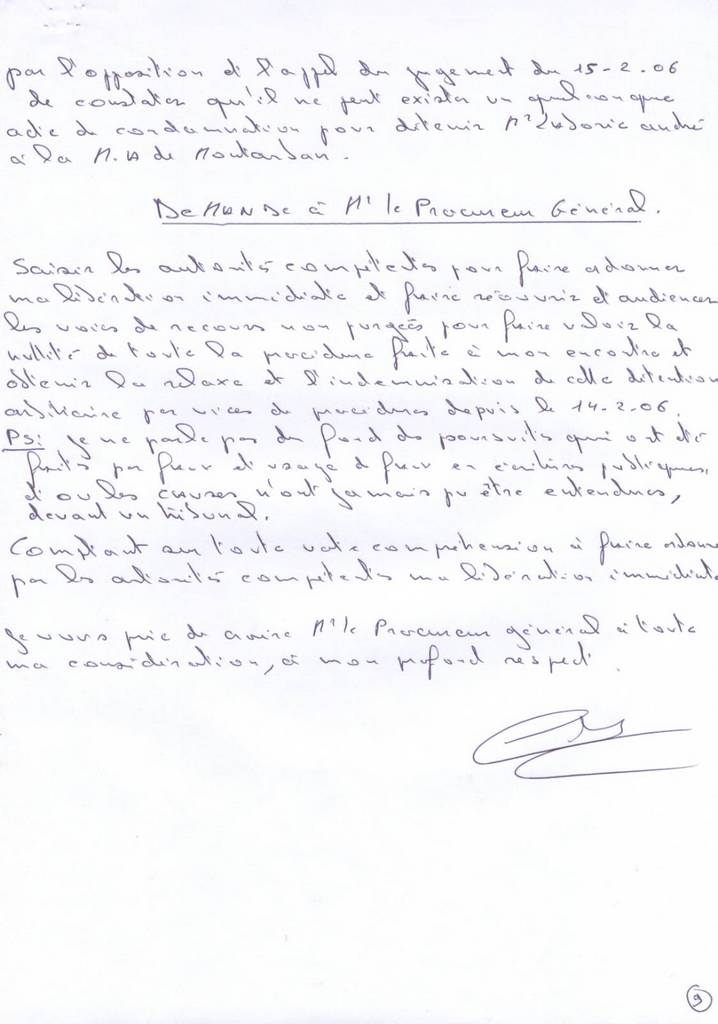 par l'opposition et l'appel du jugement du 15-2.06
de constater qu'il ne peut exister un quelconque
acte de condamnation pour détenir Mr André
à la M.A de Montauban.
DEMANDE à Mr le Procureur Général.
Saisir les autorités compétentes pour faire ordonner
ma libération immédiate et faire réouvrir et audiencer
les voies de recours non purgées pour faire valoir la
nullité de toute la procédure faite à mon encontre et
obtenir la relaxe et l'indemnisation de cette détention
arbitraire par vices de procédures depuis le 14-2-06.
PS: je ne parle pas du fond des poursuites qui ont été
faites par faux et usage de faux en écritures publiques,
et ou les causes n'ont jamais pu être entendues,
devant un tribunal.
Comptant sur toute votre compréhension à faire ordonner
par les autorités compétentes ma libération immédiate
Je vous prie de croire Mr le Procureur général à toute
ma considération, à mon profond respect.
9